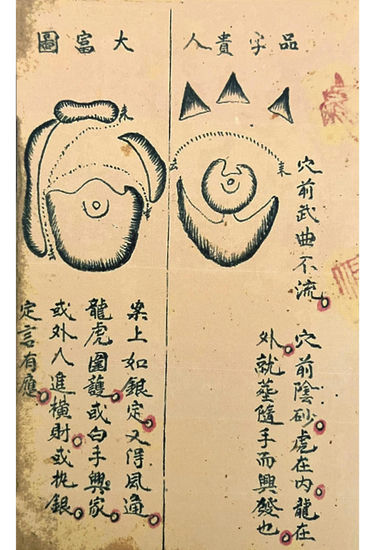 品字貴人
来
去
穴前武曲不流
穴前陰砂虎在內龍在
外就葬隨手而興發也
大富圖
来
案上如銀定又得風通
龍虎圍護或白手興家
或外人進橫財或銀
定言有應